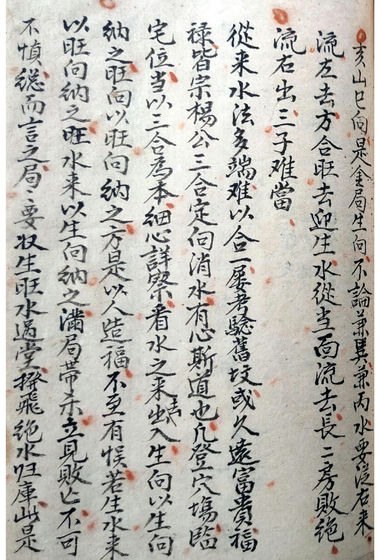 亥山巳向是金局生向不論兼巽兼丙水要從右來
流左去方合旺去迎生水從当面流去長二房敗絕
流右出三子难當
從来水法多端难以合一屡考驗舊坟或久遠富貴福
禄皆宗楊公三合定向消水有心斯道也凡登穴塲監
宅位当以三合為本細心詳察看水之来去出入生向以生向
納之旺向以旺向納之方是以人造福不至有悮若生水来
以旺向納之旺水来以生向納之滿局帶杀立見敗亡不可
不慎総而言之局要收生旺水過堂撥飛絕水归庫此是